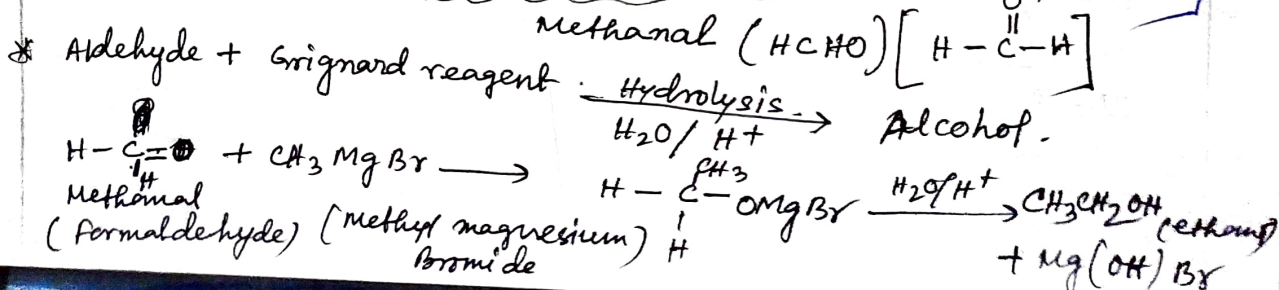 Methanal (HCHO) [H-C-H]
O
||
* Aldehyde + Grignard reagent Hydrolysis. → Alcohol.
H2O/H+
H-C=O + CH3MgBr → H-C-OMgBr H2O/H+ → CH3CH2OH (ethanol)
H
CH3
H
Methanal
(formaldehyde) (Methyl magnesium Bromide)
+ Mg(OH)Br